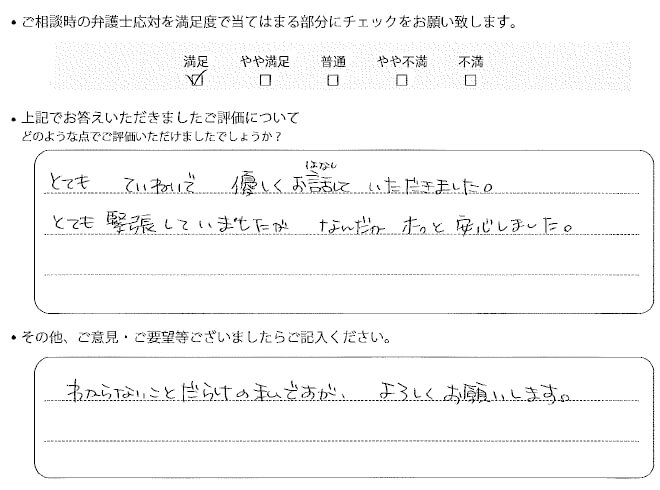 • ご相談時の弁護士応対を満足度で当てはまる部分にチェックをお願い致します。
満足 やや満足 普通 やや不満 不満
☑ ☐ ☐ ☐ ☐
• 上記でお答えいただきましたご評価について
どのような点でご評価いただけましたでしょうか？
はなし
とても ていねいで 優しくお話して いただきました。
とても緊張していましたが なんだか ホッと安心しました。
• その他、ご意見・ご要望等ございましたらご記入ください。
わからないことだらけの私ですが、 よろしくお願いします。